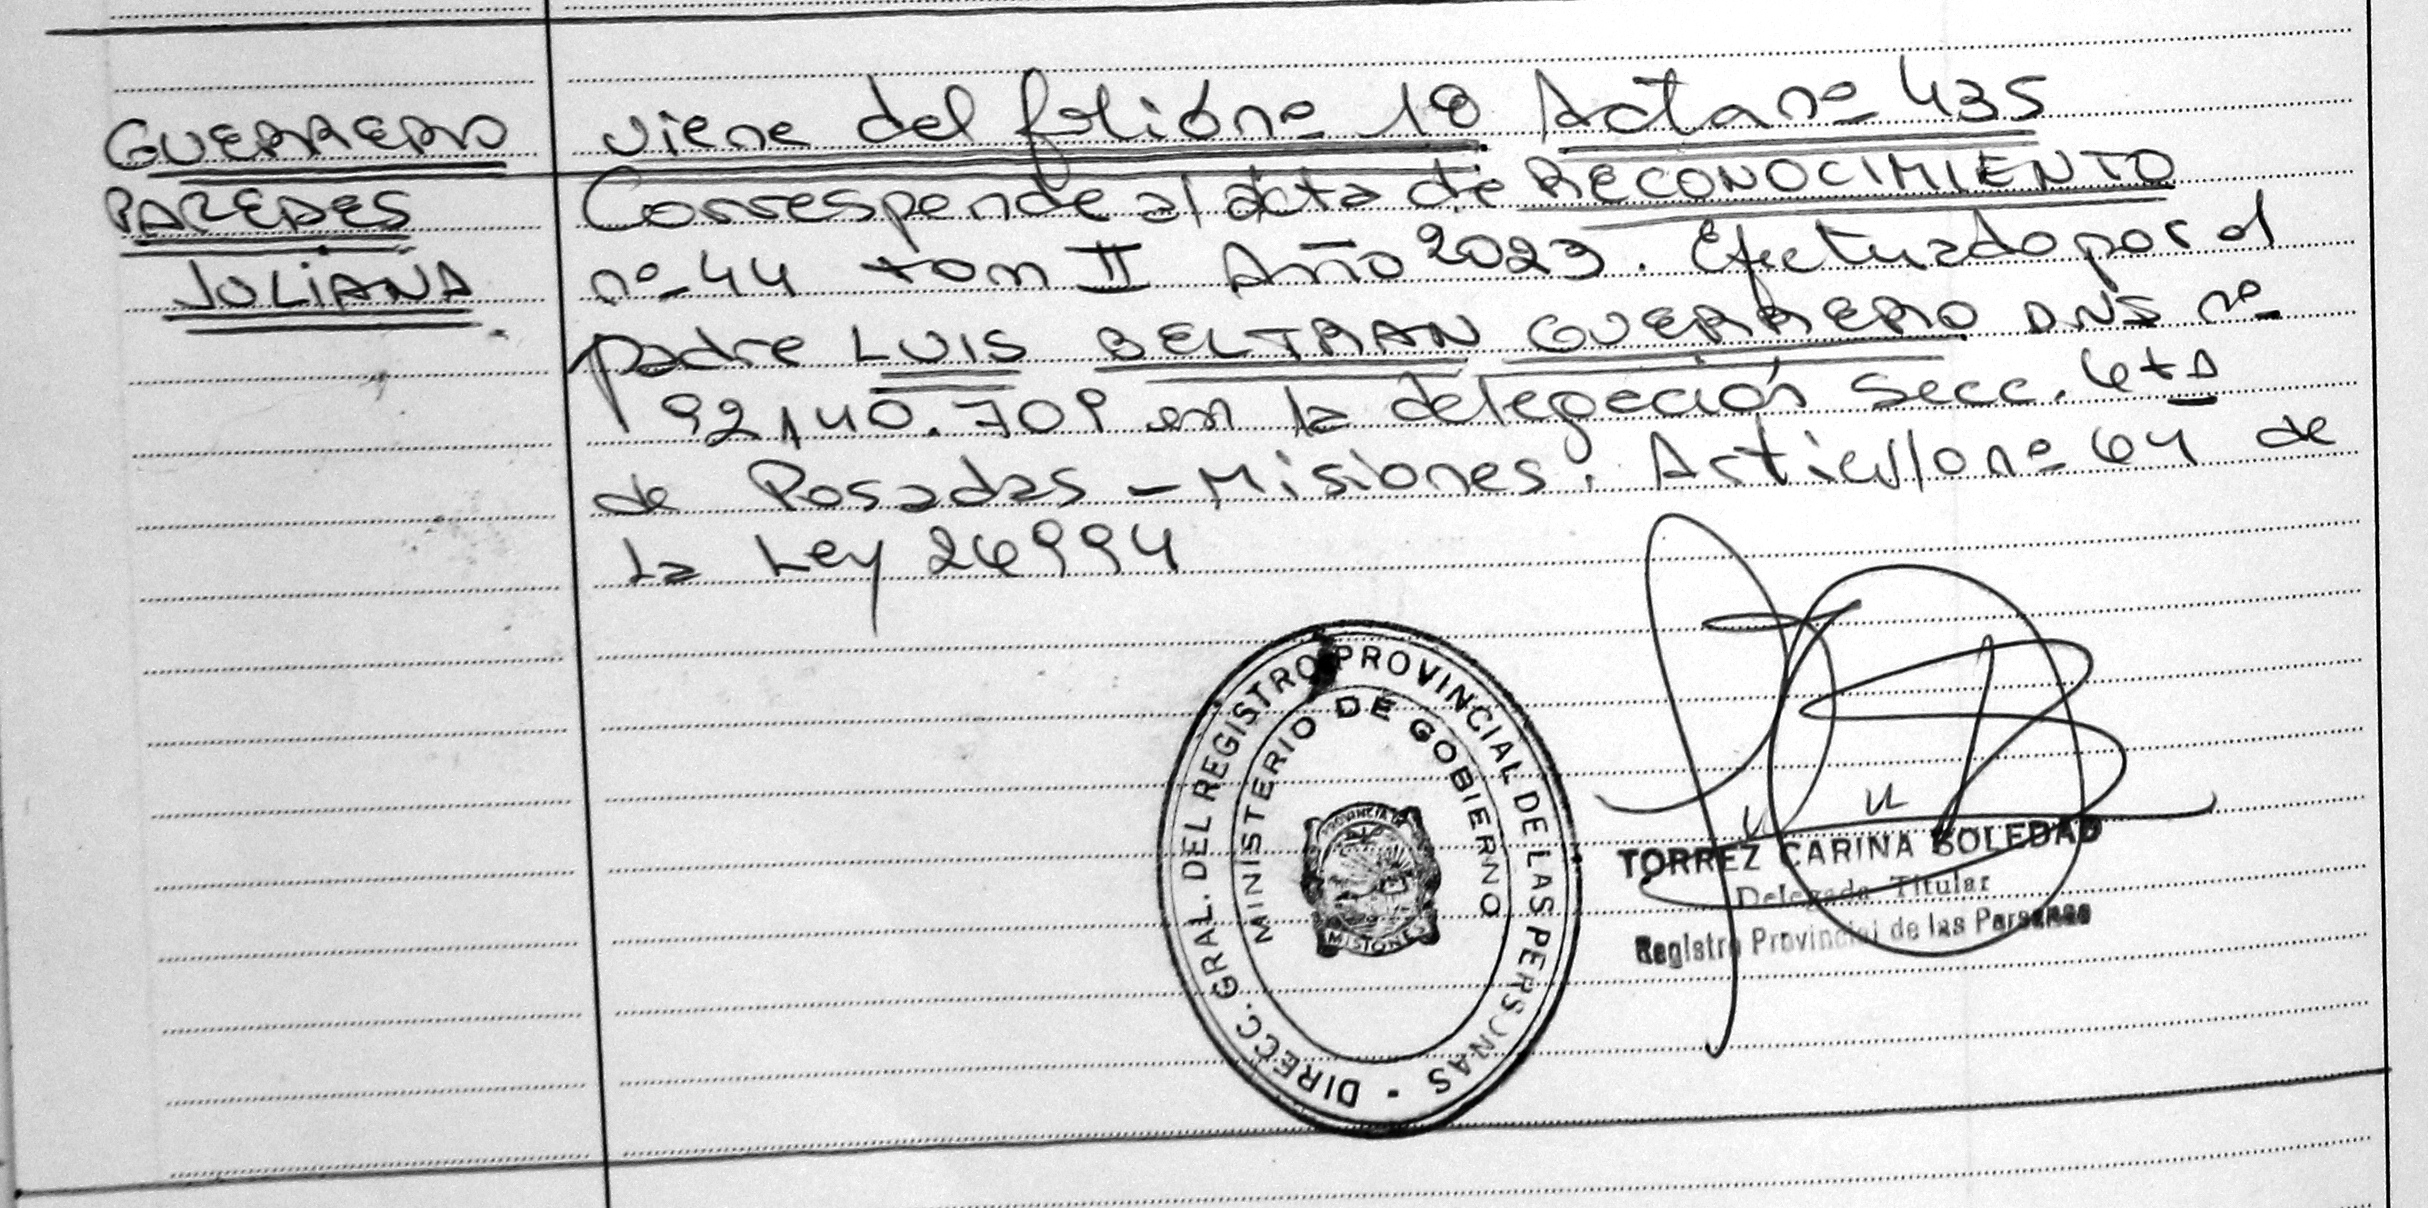 GUERRERO
PAREDES
JULIANA
viene del folio nº 18 Acta nº 435
Corresponde al acta de RECONOCIMIENTO
nº 44 tom II Año 2023. Efectuado por el
padre LUIS BELTRAN GUERRERO DNI nº
92.140.709 en la delegación Secc. 6ta
de Posadas - Misiones. Articulo nº 64 de
la Ley 26994
DIRECC. GRAL. DEL REGISTRO PROVINCIAL DE LAS PERSONAS -
MINISTERIO DE GOBIERNO
PROVINCIA DE
MISIONES
TORREZ CARINA SOLEDAD
Delegada Titular
Registro Provincial de las Personas